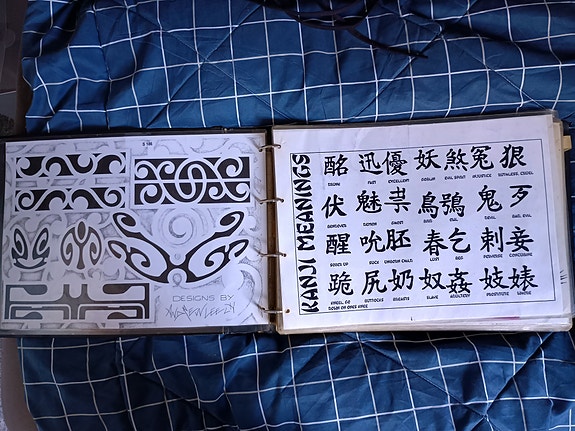 S 186
DESIGNS BY
ANDREW LEEDY
KANJI MEANINGS
酩 迅 優 妖 煞 冤 狠
FAST EXCELLENT EVIL SPIRIT INJUSTICE RUTHLESS, CRUEL
伏 魅 祟 鳥 鴞 鬼 歹
DEMON OWL DEVIL BAD, EVIL
醒 吮 胚 春 乞 刺 妾
SOBER UP SUCK LUST BEG CONCUBINE
跪 尻 奶 奴 姦 妓 婊
KNEEL, GO
DOWN ON ONES KNEE
BUTTOCKS BREASTS SLAVE ADULTERY PROSTITUTE WHORE